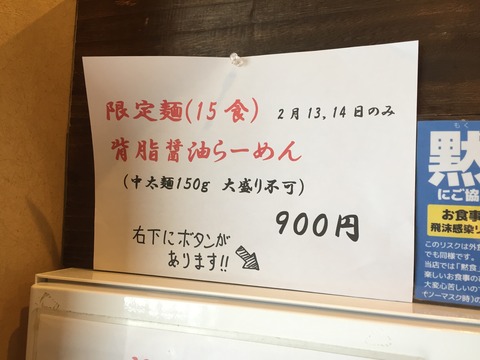 限定麺(15食) 2月13,14日のみ
背脂醤油らーめん
(中太麺150g 大盛り不可)
900円
右下にボタンが
あります!!
もく
黙
にご協
お食事
飛沫感染リ
このリスクは外食
でも同様です。
当店では「黙食
楽しいお食事の
大変心苦しいので